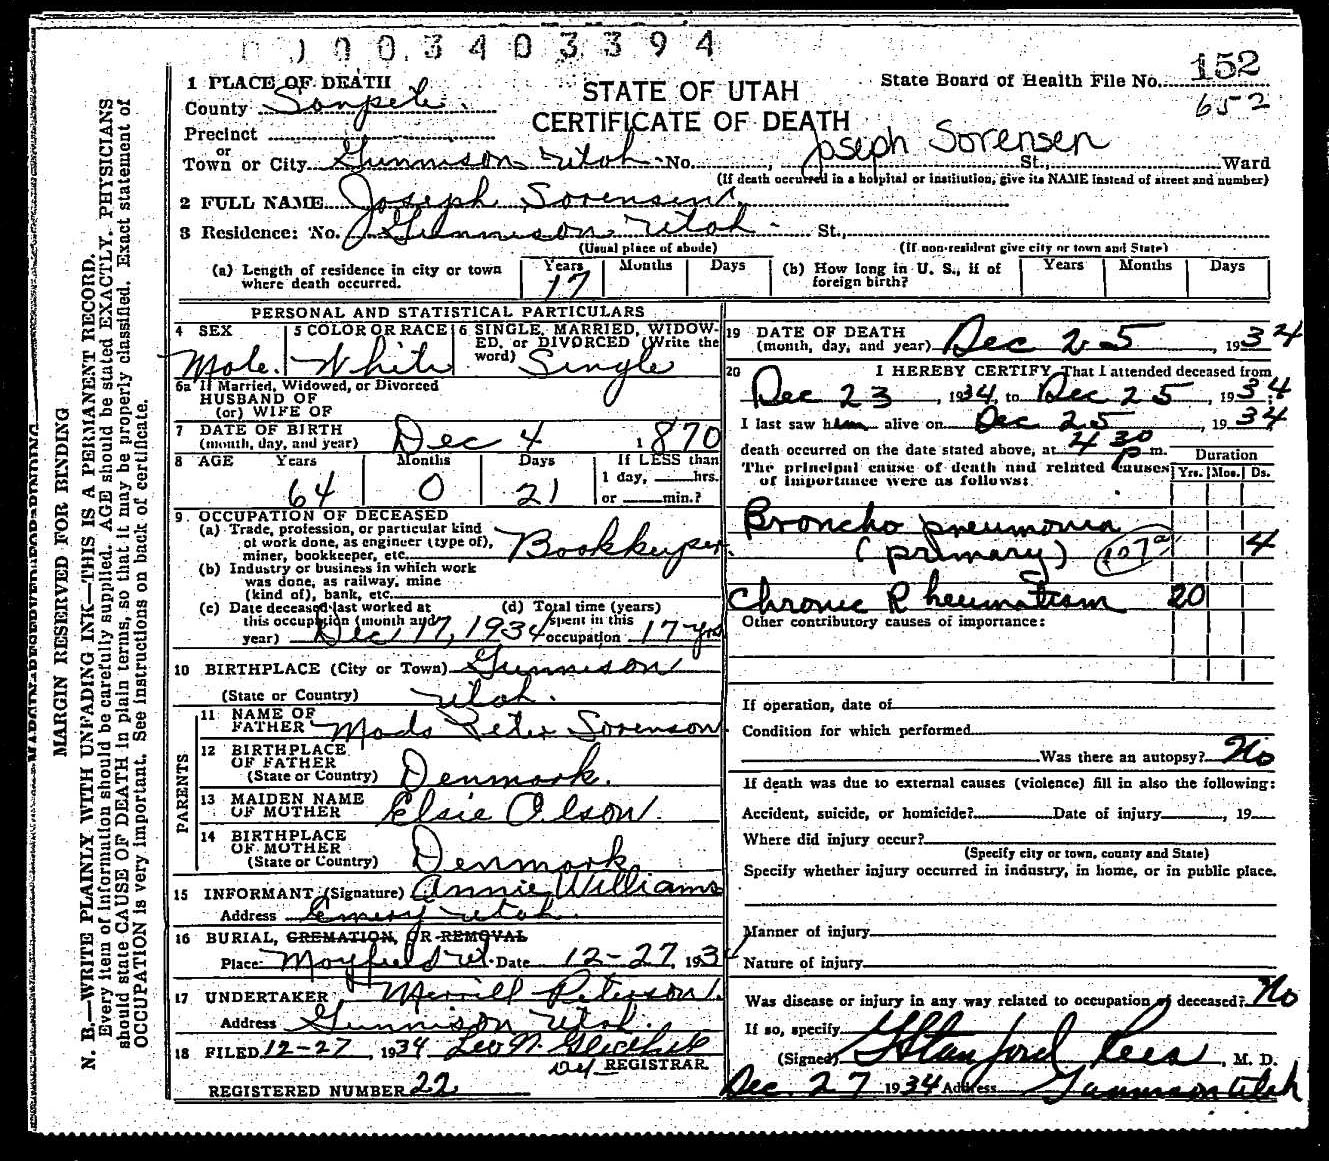 0003403394
1 PLACE OF DEATH
County Sanpete.
Precinct
or
Town or City Gunnison Utah No. St., Ward
STATE OF UTAH
CERTIFICATE OF DEATH
State Board of Health File No. 152
652
Joseph Sorensen
(If death occurred in a hospital or institution, give its NAME instead of street and number)
2 FULL NAME Joseph Sorensen.
3 Residence: No. Gunnison Utah. St.,
(Usual place of abode) (If non-resident give city or town and State)
(a) Length of residence in city or town where death occurred. Years 17 Months Days
(b) How long in U. S., if of foreign birth? Years Months Days
PERSONAL AND STATISTICAL PARTICULARS
4 SEX Male.
5 COLOR OR RACE White
6 SINGLE, MARRIED, WIDOWED, or DIVORCED (Write the word) Single
6a If Married, Widowed, or Divorced
HUSBAND OF
(or) WIFE OF
7 DATE OF BIRTH
(month, day, and year) Dec 4 1870
8 AGE Years 64 Months 0 Days 21 If LESS than
1 day, hrs.
or min.?
9 OCCUPATION OF DECEASED
(a) Trade, profession, or particular kind
of work done, as engineer (type of),
miner, bookkeeper, etc. Bookkeeper.
(b) Industry or business in which work
was done, as railway, mine
(kind of), bank, etc.
(c) Date deceased last worked at
this occupation (month and
year) Dec 17, 1934
(d) Total time (years)
spent in this
occupation 17 yrs
10 BIRTHPLACE (City or Town) Gunnison
(State or Country) Utah.
PARENTS
11 NAME OF
FATHER Mads Peter Sorenson
12 BIRTHPLACE
OF FATHER
(State or Country) Denmark.
13 MAIDEN NAME
OF MOTHER Elsie Olson.
14 BIRTHPLACE
OF MOTHER
(State or Country) Denmark
15 INFORMANT (Signature) Annie Williams
Address Emery Utah.
16 BURIAL, CREMATION, OR REMOVAL
Place Mayfield Ut. Date 12-27, 1934
17 UNDERTAKER Merrill Peterson.
Address Gunnison Utah.
18 FILED 12-27, 1934 Leo N.
REGISTRAR.
REGISTERED NUMBER 22
19 DATE OF DEATH
(month, day, and year) Dec 25, 1934
20 I HEREBY CERTIFY, That I attended deceased from
Dec 23, 1934, to Dec 25, 1934
I last saw him alive on Dec 25, 1934
death occurred on the date stated above, at 4 30 p m.
The principal cause of death and related causes
of importance were as follows:
Duration
Yrs. Mos. Ds.
Broncho pneumonia
(primary) 107a 4
Chronic Rheumatism 20
Other contributory causes of importance:
If operation, date of
Condition for which performed
Was there an autopsy? No
If death was due to external causes (violence) fill in also the following:
Accident, suicide, or homicide? Date of injury, 19
Where did injury occur?
(Specify city or town, county and State)
Specify whether injury occurred in industry, in home, or in public place.
Manner of injury
Nature of injury
Was disease or injury in any way related to occupation of deceased? No
If so, specify
(Signed) G Stanford Rees, M. D.
Dec. 27 1934 Address Gunnison Utah
MARGIN RESERVED FOR BINDING
N. B.—WRITE PLAINLY WITH UNFADING INK—THIS IS A PERMANENT RECORD.
Every item of information should be carefully supplied. AGE should be stated EXACTLY. PHYSICIANS
should state CAUSE OF DEATH in plain terms, so that it may be properly classified. Exact statement of
OCCUPATION is very important. See instructions on back of certificate.